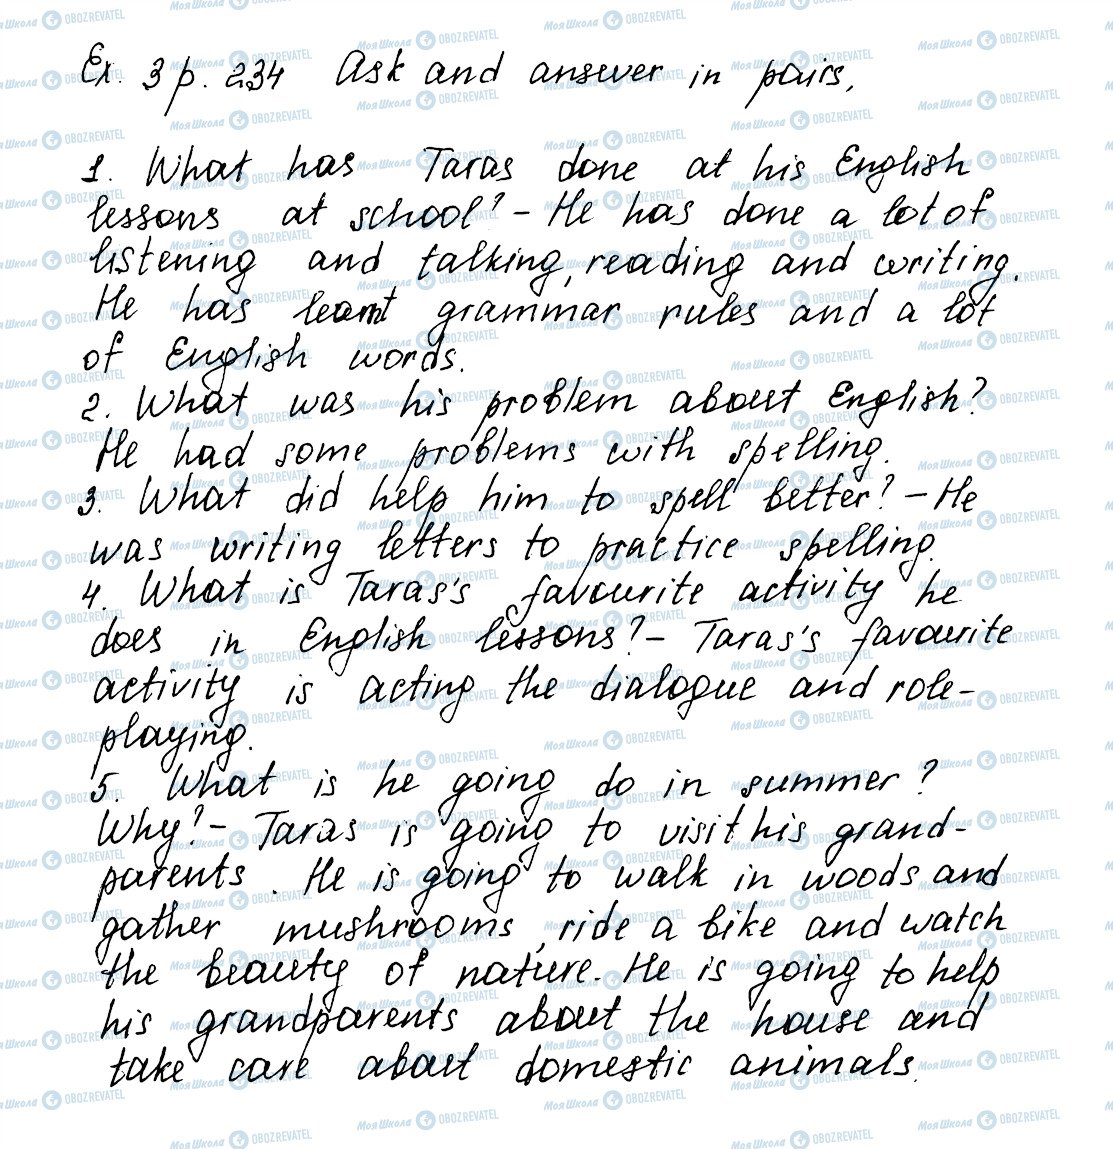 Ex. 3 p. 234 Ask and answer in pairs.
1. What has Taras done at his English
lessons at school? - He has done a lot of
listening and talking, reading and writing.
He has learnt grammar rules and a lot
of English words.
2. What was his problem about English?
He had some problems with spelling.
3. What did help him to spell better? - He
was writing letters to practice spelling.
4. What is Taras's favourite activity he
does in English lessons? - Taras's favourite
activity is acting the dialogue and role-
playing.
5. What is he going do in summer?
Why? - Taras is going to visit his grand-
parents. He is going to walk in woods and
gather mushrooms, ride a bike and watch
the beauty of nature. He is going to help
his grandparents about the house and
take care about domestic animals.